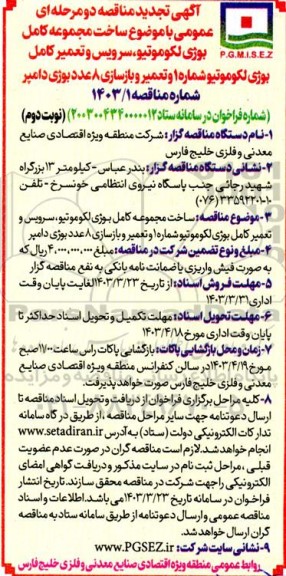 آگهی تجدید مناقصه دو مرحله ای
عمومی با موضوع ساخت مجموعه کامل
بوژی لکوموتیو، سرویس و تعمیر کامل
P.G.M.I.S.E.Z
بوژی لکوموتیو شماره ۱ و تعمیر و بازسازی ۸ عدد بوژی دامپر
شماره مناقصه ۱۴۰۳/۱
(شماره فراخوان در سامانه ستاد ۲۰۰۳۰۰۴۳۴۰۰۰۰۰۱۲) (نوبت دوم)
۱- نام دستگاه مناقصه گزار: شرکت منطقه ویژه اقتصادی صنایع
معدنی و فلزی خلیج فارس
۲- نشانی دستگاه مناقصه گزار: بندر عباس - کیلومتر ۱۳ بزرگراه
شهید رجائی جنب پاسگاه نیروی انتظامی خونسرخ - تلفن
(۰۷۶)
۳- موضوع مناقصه: ساخت مجموعه کامل بوژی لکوموتیو، سرویس و
تعمیر کامل بوژی لکوموتیو شماره ۱ و تعمیر و بازسازی ۸ عدد بوژی دامپر
۴- مبلغ و نوع تضمین شرکت در مناقصه: مبلغ ۴,۰۰۰,۰۰۰,۰۰۰ ریال که
به صورت فیش واریزی یا ضمانت نامه بانکی به نفع مناقصه گزار
۵- مهلت فروش اسناد: از تاریخ ۱۴۰۳/۳/۲۳ لغایت پایان وقت
اداری ۱۴۰۳/۳/۳۱
۶- مهلت تحویل اسناد: مهلت تکمیل و تحویل اسناد حداکثر تا
پایان وقت اداری مورخ ۱۴۰۳/۴/۱۸
۷- زمان و محل بازگشایی پاکات: بازگشایی پاکات راس ساعت ۱۱:۰۰ صبح
مورخ ۱۴۰۳/۴/۱۹ در سالن کنفرانس منطقه ویژه اقتصادی صنایع
معدنی و فلزی خلیج فارس صورت خواهد پذیرفت.
۸- کلیه مراحل برگزاری فراخوان از دریافت و تحویل اسناد مناقصه تا
ارسال دعوتنامه جهت سایر مراحل مناقصه، از طریق درگاه سامانه
تدارکات الکترونیکی دولت (ستاد) به آدرس www.setadiran.ir
انجام خواهد شد. لازم است مناقصه گران در صورت عدم عضویت
قبلی، مراحل ثبت نام در سایت مذکور و دریافت گواهی امضای
الکترونیکی را جهت شرکت در مناقصه محقق سازند. تاریخ انتشار
فراخوان در سامانه تاریخ ۱۴۰۳/۳/۲۳ می باشد. اطلاعات و اسناد
مناقصه عمومی و ارسال دعوتنامه از طریق سامانه ستاد به مناقصه
گران ارسال خواهد شد.
۹- نشانی سایت شرکت: www.PGSEZ.ir
روابط عمومی منطقه ویژه اقتصادی صنایع معدنی و فلزی خلیج فارس